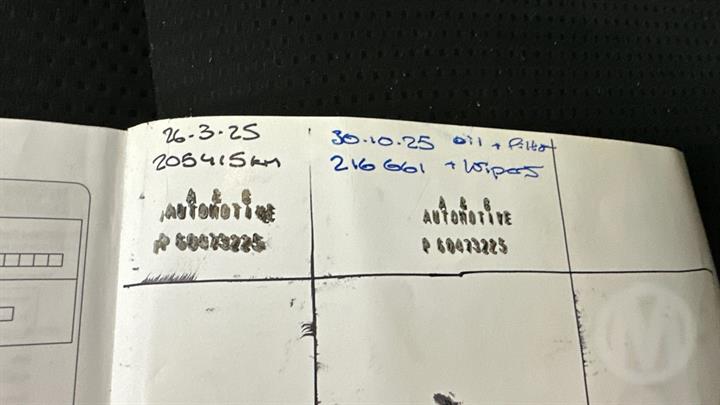 26.3.25
205415km
A & G
AUTOMOTIVE
P 60473225
30.10.25 oil + Filter
216661 + Wipers
A & G
AUTOMOTIVE
P 60473225
M